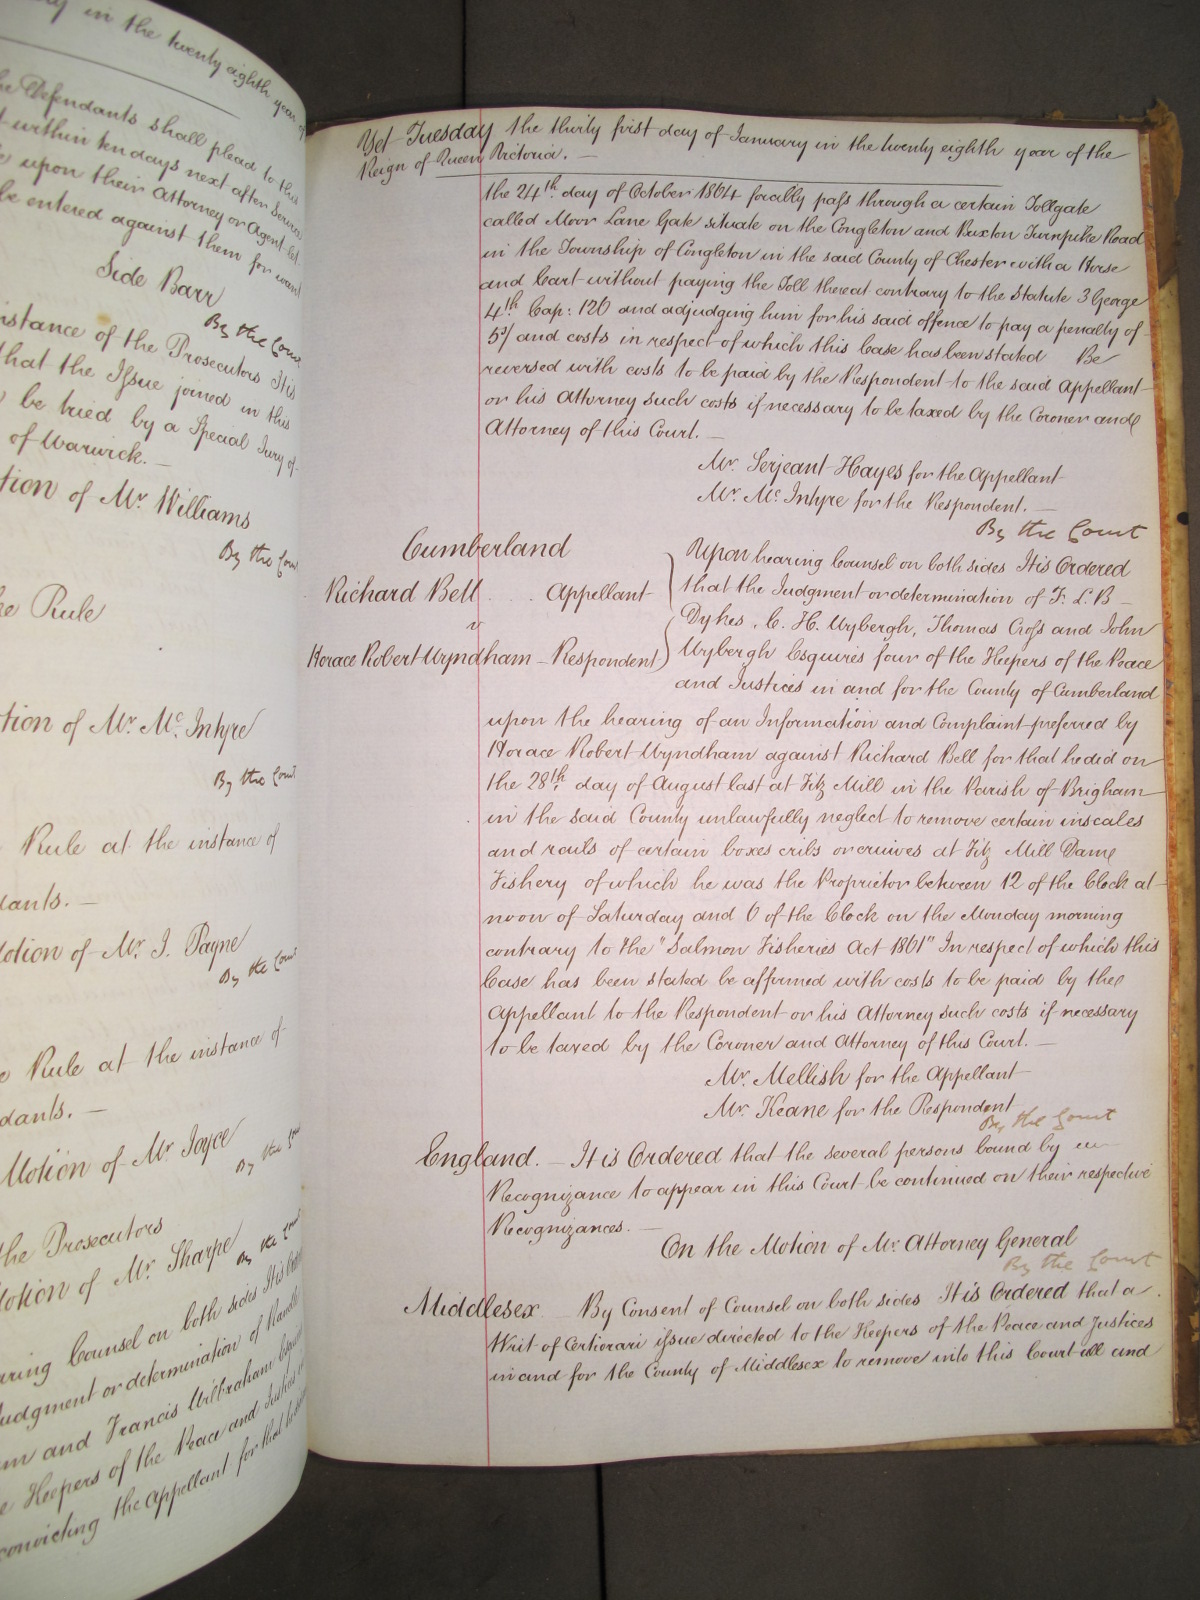 in the twenty eighth year of
the Defendants shall plead to this
within ten days next after Service
upon their Attorney or Agent let
be entered against them for want
Side Barr
By the Court
instance of the Prosecutors It is
that the Issue joined in this
be tried by a Special Jury of
of Warwick. —
tion of Mr. Williams
By the Court
Rule
tion of Mr. Mc. Intyre
By the Court
Rule at the instance of
dants. —
Motion of Mr. J. Payne
By the Court
Rule at the instance of
dants. —
Motion of Mr Joyce
By the
the Prosecutors
Motion of Mr. Sharpe
By the Court
aring Counsel on both sides It is
Judgment or determination of
and Francis Wilbraham
Keepers of the Peace and Justices
convicting the Appellant for that
Yet Tuesday the thirty first day of January in the twenty eighth year of the
Reign of Queen Victoria. —
the 24th. day of October 1864 forcibly pass through a certain Tollgate
called Moor Lane Gate situate on the Congleton and Buxton Turnpike Road
in the Township of Congleton in the said County of Chester with a Horse
and Cart without paying the Toll thereat contrary to the Statute 3 George
4th Cap: 126 and adjudging him for his said offence to pay a penalty of
5/ and costs in respect of which this Case has been stated Be
reversed with costs to be paid by the Respondent to the said Appellant
or his Attorney such costs if necessary to be taxed by the Coroner and
Attorney of this Court. —
Mr. Serjeant Hayes for the Appellant
Mr. Mc. Intyre for the Respondent. —
By the Court
Cumberland
Richard Bell . . . Appellant
v
Horace Robert Wyndham — Respondent
Upon hearing Counsel on both sides It is Ordered
that the Judgment or determination of F. L. B
Dykes, C. H. Wybergh, Thomas Cross and John
Wybergh Esquires four of the Keepers of the Peace
and Justices in and for the County of Cumberland
upon the hearing of an Information and Complaint preferred by
Horace Robert Wyndham against Richard Bell for that he did on
the 28th. day of August last at Fitz Mill in the Parish of Brigham
in the said County unlawfully neglect to remove certain inscales
and rails of certain boxes cribs or cruives at Fitz Mill Dam
Fishery of which he was the Proprietor between 12 of the Clock at
noon of Saturday and 6 of the Clock on the Monday morning
contrary to the "Salmon Fisheries Act 1861" In respect of which this
Case has been stated be affirmed with costs to be paid by the
Appellant to the Respondent or his Attorney such costs if necessary
to be taxed by the Coroner and Attorney of this Court. —
Mr. Mellish for the Appellant
Mr. Keane for the Respondent
By the Court
England. — It is Ordered that the several persons bound by
Recognizance to appear in this Court be continued on their respective
Recognizances. —
On the Motion of Mr. Attorney General
By the Court
Middlesex By Consent of Counsel on both sides It is Ordered that a
Writ of Certiorari issue directed to the Keepers of the Peace and Justices
in and for the County of Middlesex to remove into this Court all and